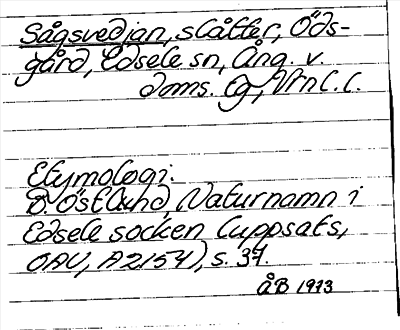 Sågsvedjan, slåtter, Öds-
gård, Edsele sn, Ång. v.
doms. lg, Vnl. l.
Etymologi:
D. Östlund, Naturnamn i
Edsele socken (uppsats,
OAU, A2154), s. 37.
ÅB 1973